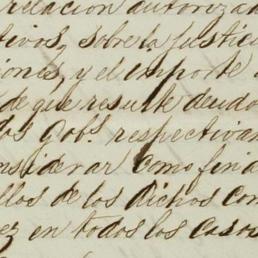 relacion autorizad
tivos, sobre la justici
iones, y el importe
de que resulte deudo
los Gobs. respectivam
nsiderar como fina
llos de los dichos com
ez en todos los casos